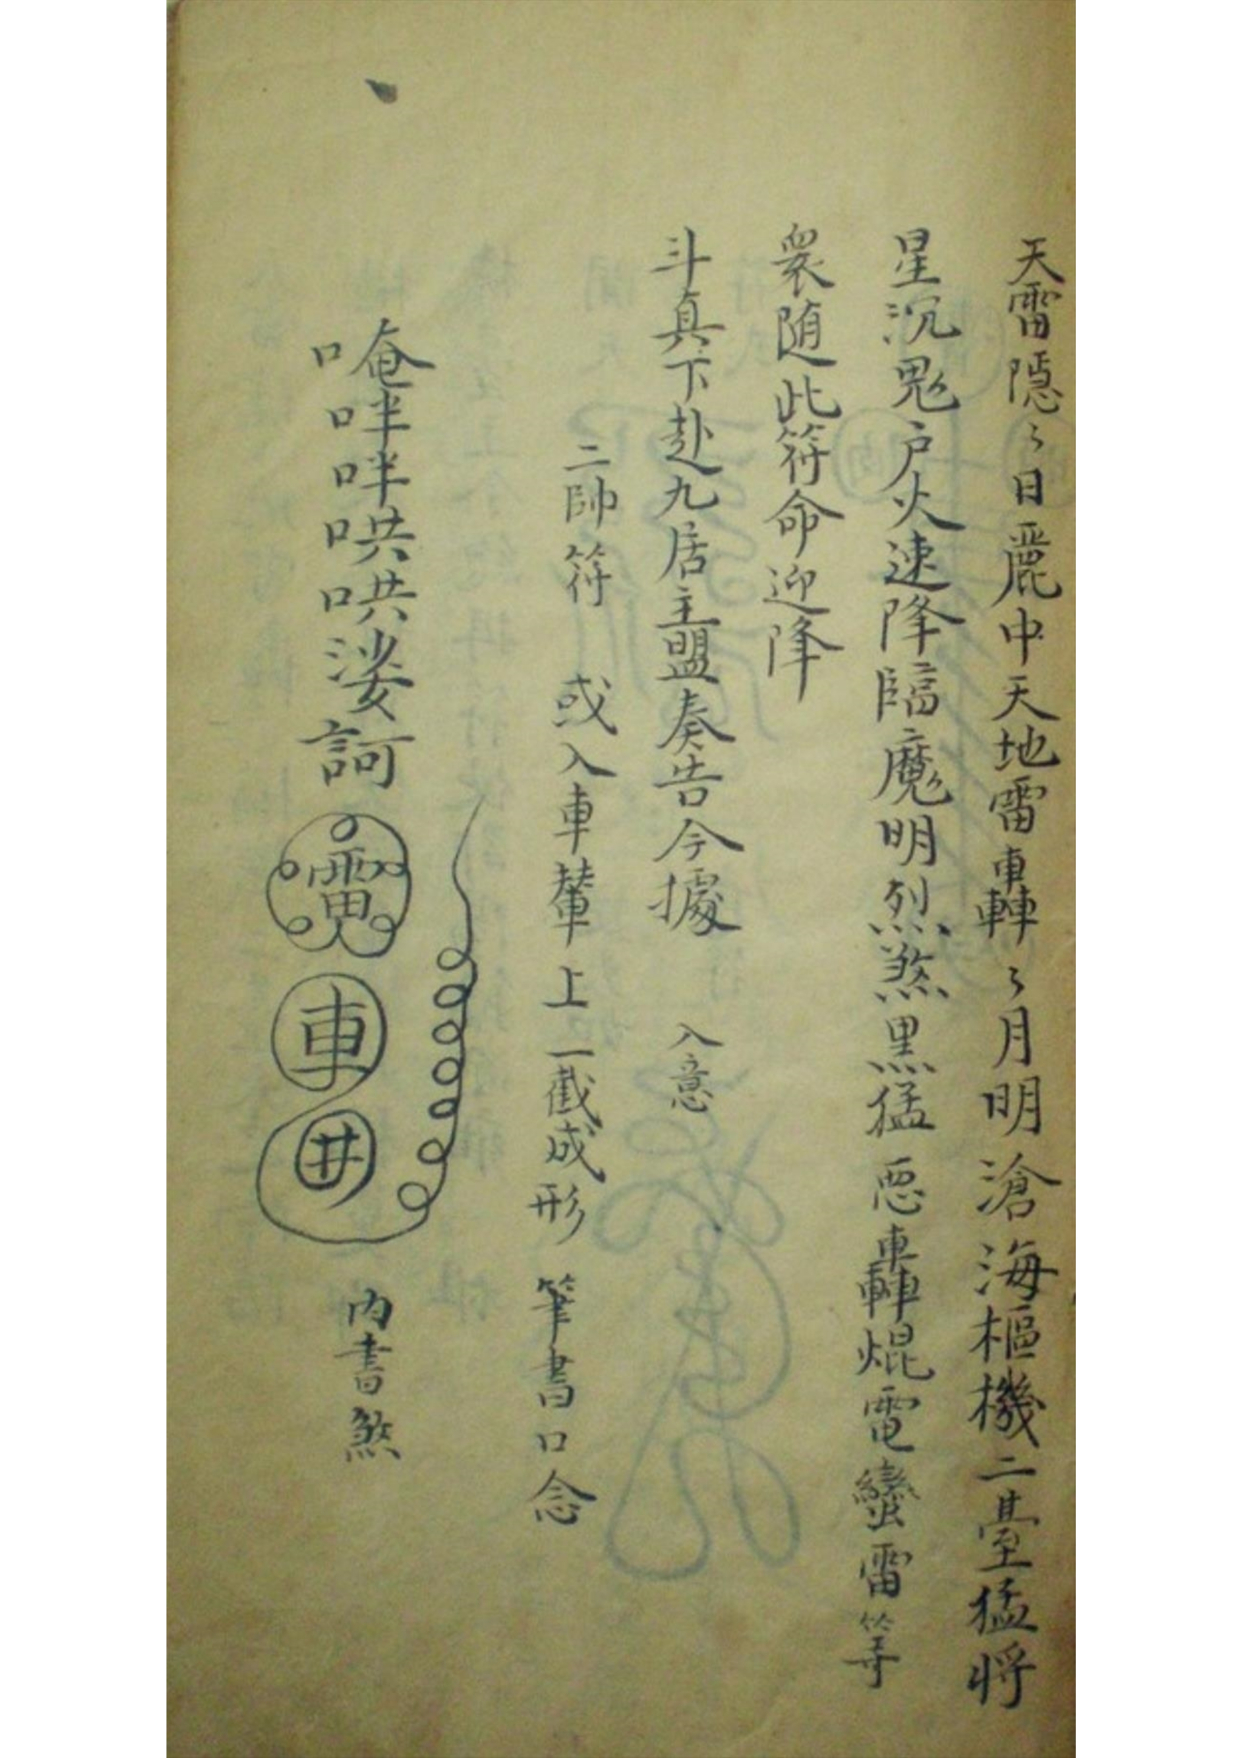 天雷隱々日麗中天地雷轟々月明滄海樞機二臺猛将
星沉鬼户火速降臨魔明烈煞黒猛恶轟焜電蠻雷等
衆随此符命迎降
斗真下赴九居主盟奏告今據 入意
二帥符 或入車輦上一截成形 筆書口念
唵吽吽哄哄娑訶
雷
車
井
内書煞